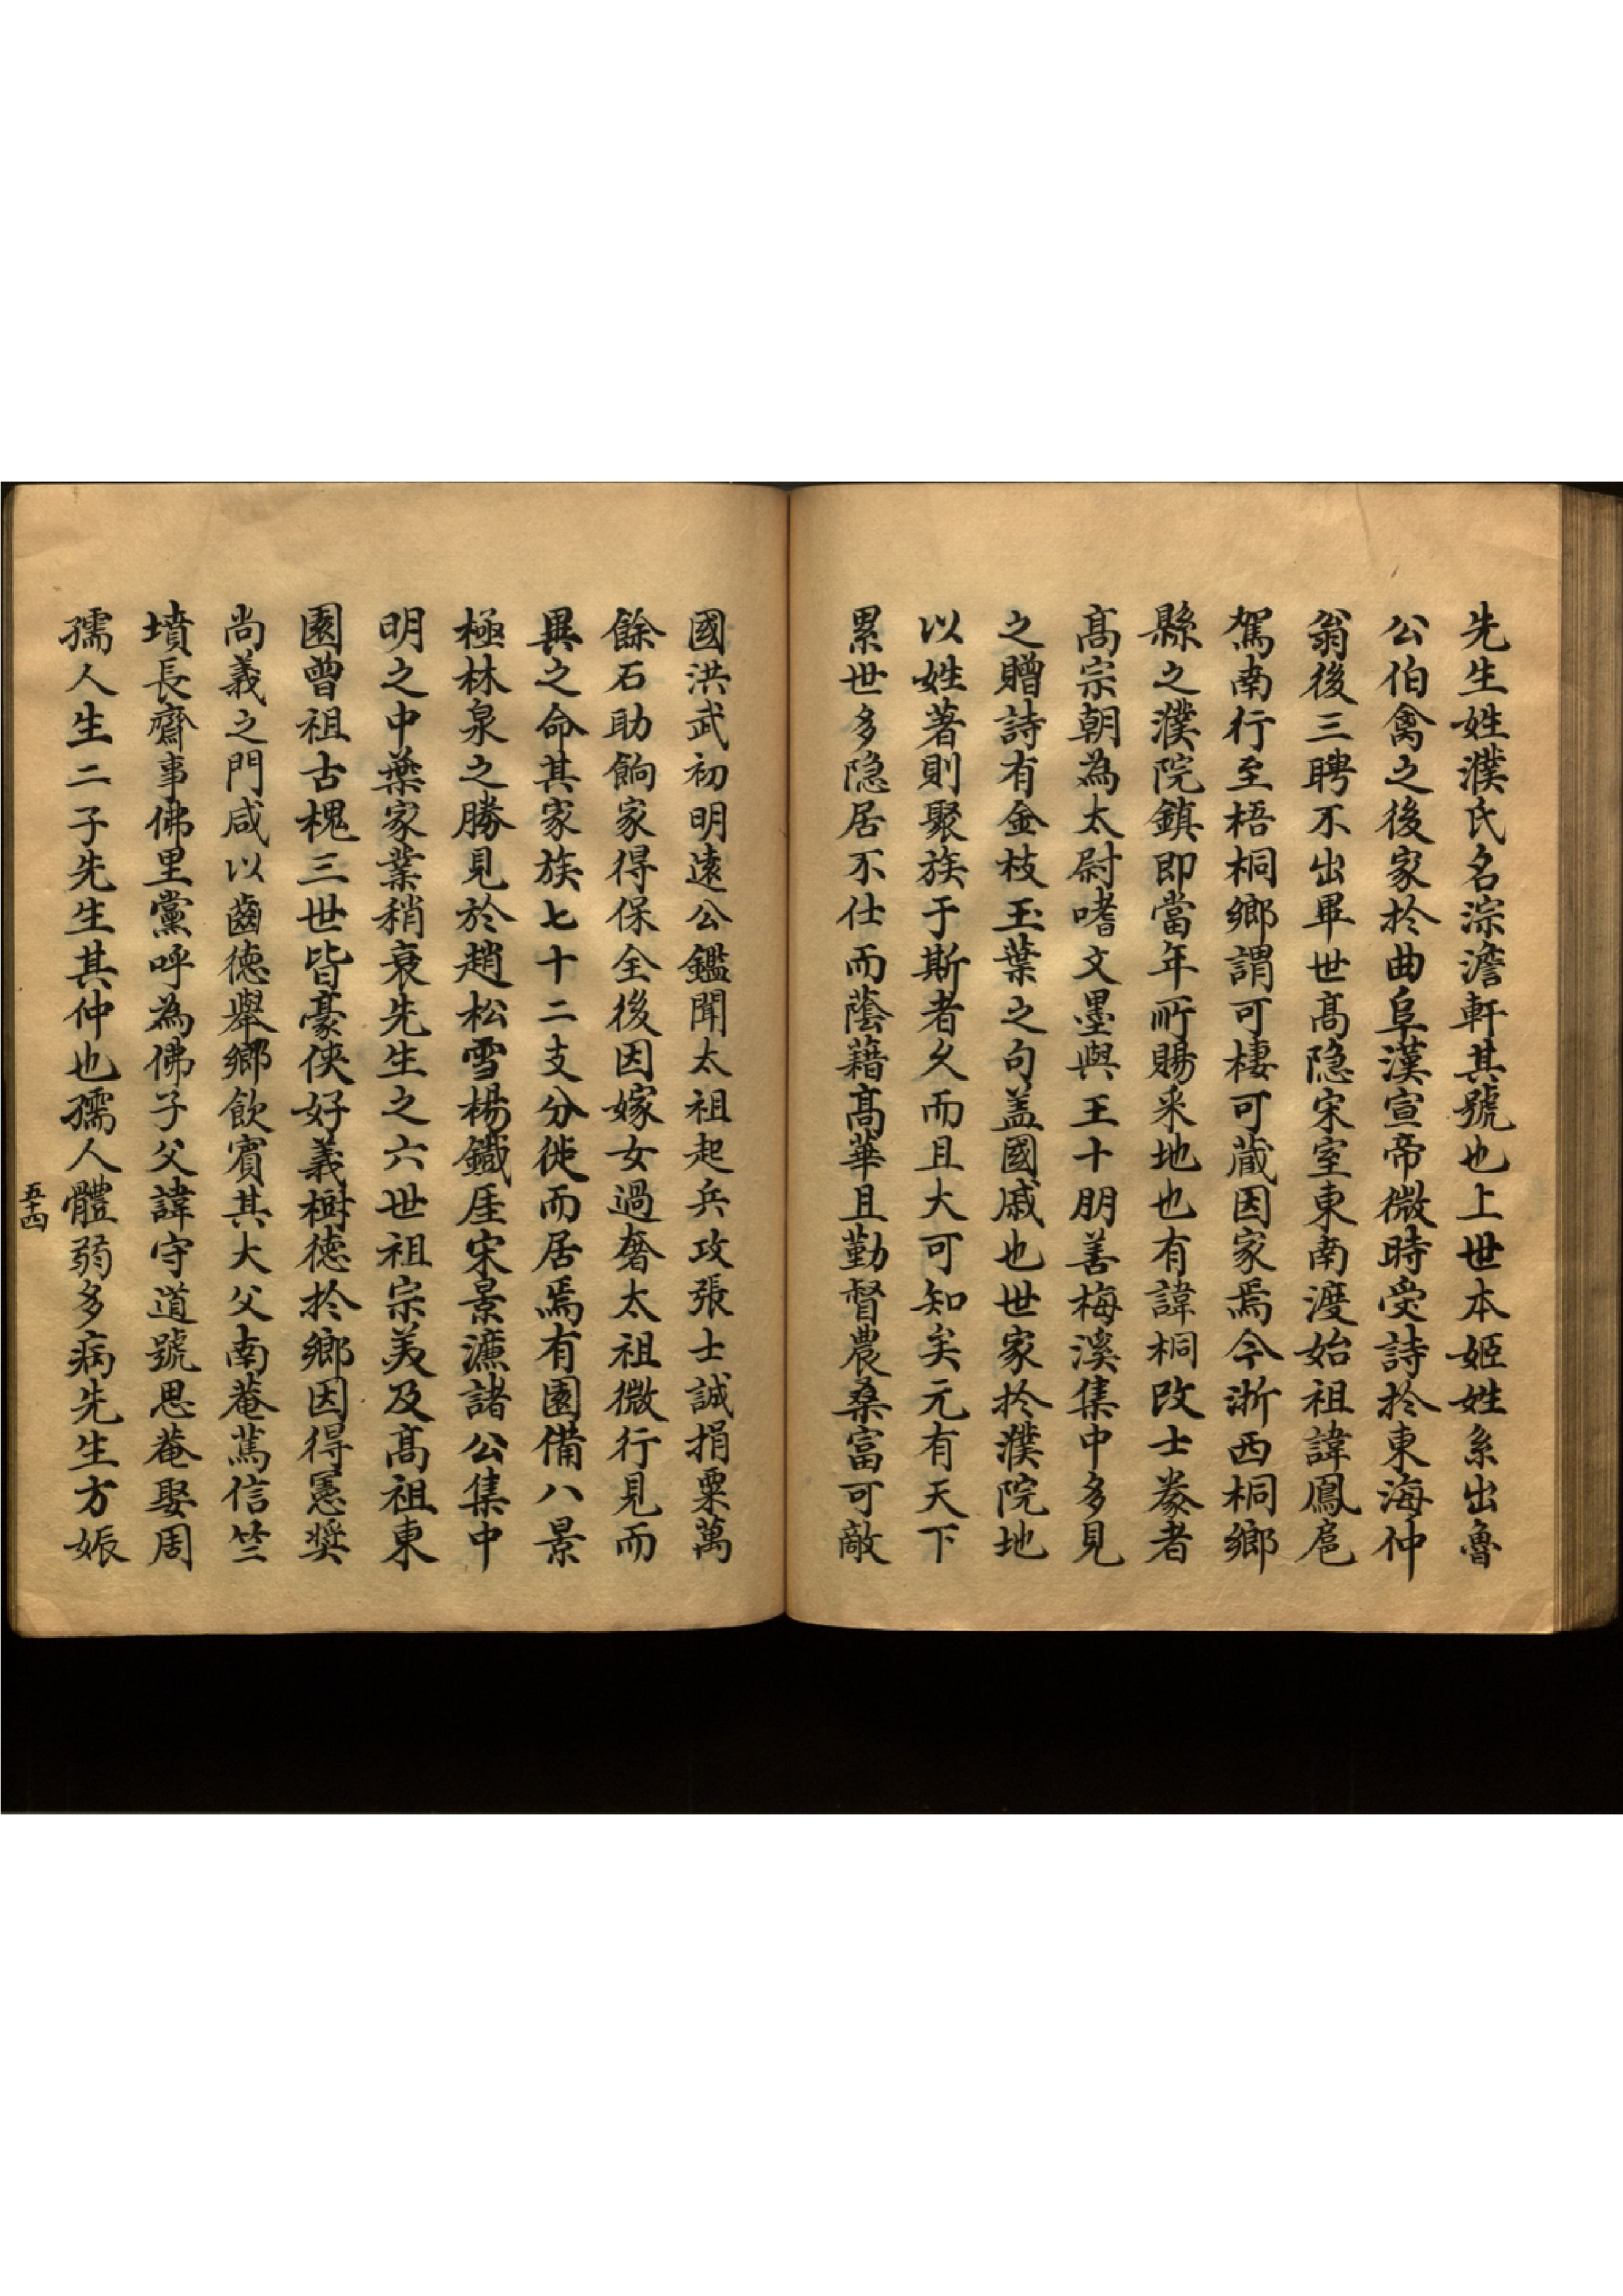 先生姓濮氏名淙澹軒其號也上世本姬姓系出魯
公伯禽之後家扵曲阜漢宣帝微時受詩扵東海仲
翁後三聘不出畢世髙隐宋室東南渡始祖諱鳳扈
駕南行至梧桐鄉謂可棲可蔵因家焉今浙西桐鄉
縣之濮院鎮即當年所賜采地也有諱桐攺士豢者
髙宗朝為太尉嗜文墨與王十朋善梅溪集中多見
之贈詩有金枝玉葉之句盖國戚也世家扵濮院地
以姓著則聚族于斯者乆而且大可知矣元有天下
累世多隐居不仕而蔭藉髙華且勤督農桑富可敵
國洪武初明遠公鑑聞太祖起兵攻張士誠捐粟萬
餘石助餉家得保全後因嫁女過奢太祖微行見而
異之命其家族七十二支分徙而居焉有園備八景
極林泉之勝見於趙松雪楊鐵厓宋景濂諸公集中
明之中葉家業稍衰先生之六世祖宗美及髙祖東
園曽祖古槐三世皆豪俠好義樹徳扵鄉因得憲奨
尚義之門咸以齒徳舉鄉飲賓其大父南菴篤信竺
墳長齋事佛里黨呼為佛子父諱守道號思菴娶周
孺人生二子先生其仲也孺人體弱多病先生方娠
五十四